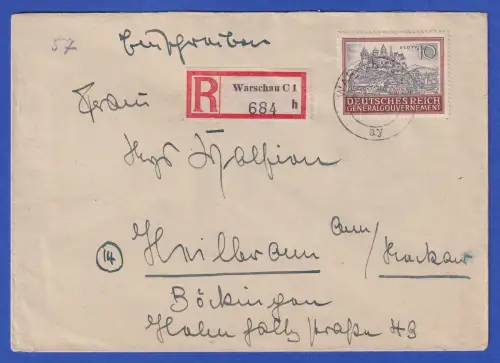 57 Einschreiben
ZŁOTY 10
R Warschau C 1
684 h
DEUTSCHES REICH
GENERALGOUVERNEMENT
ay
Frau
(14) Heilbronn am/Neckar
Böckingen
straße 43